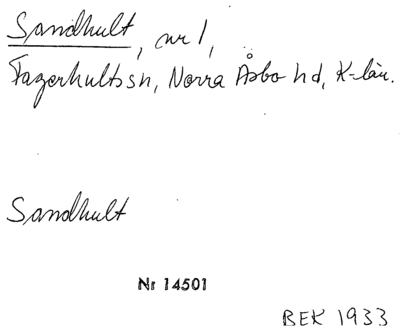 Sandhult, nr 1,
Fagerhults sn, Norra Åsbo hd, K-län.
Sandhult
Nr 14501
BEK 1933